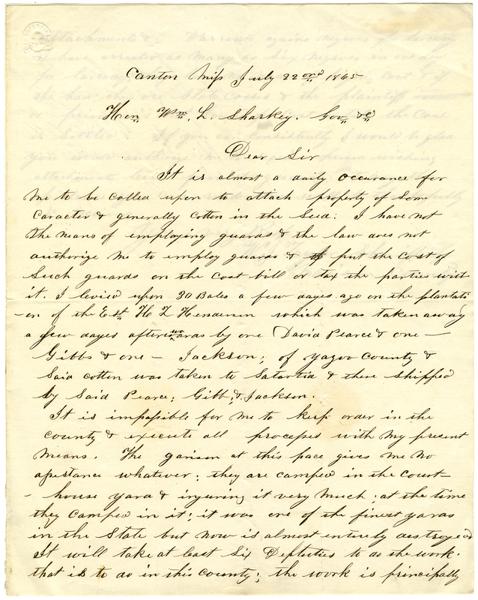 Canton Miss July 22nd 1865
Hon Wm. L. Sharkey. Gov &c
Dear Sir
It is almost a daily occurance for
Me to be called upon to attach property of Some
Caracter & generally Cotton in the Seed. I have not
the Means of employing guards & the law does not
authorize Me to employ guards & put the Cost of
Such guards on the Cost bill or tax the parties with
it. I levied upon 20 Bales a few days ago on the plantati
-on of the Est. H. L. which was taken away
a few days afterwards by one David Pearce & one —
Gibbs & one — Jackson; of Yazoo County &
Said Cotton was taken to Satartia & there Shipped
by Said Pearce; Gibb; & Jackson.
It is impossible for me to keep order in the
County & execute all processes with my present
Means. The garison at this pace gives me no
assistance whatever; they are camped in the Court
-house yard & injuring it very much; at the time
they Camped in it; it was one of the finest yards
in the State but now is almost entirely destroyed
It will take at least Six Deputies to do the work
that is to do in this County; the work is principally